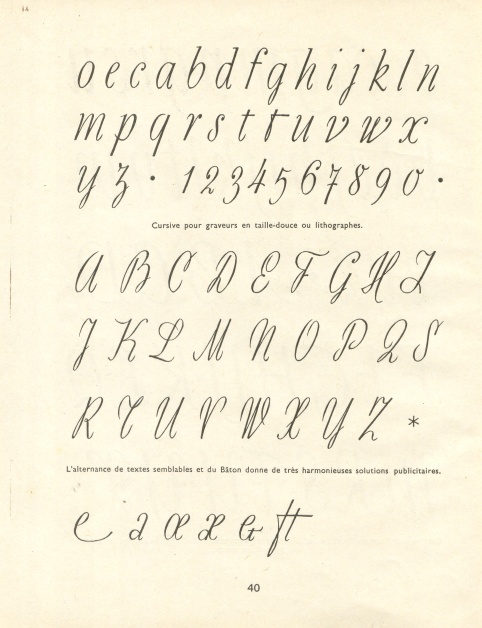 oecabdfghijkln
mpqrsttuvwx
yz · 1234567890 ·
Cursive pour graveurs en taille-douce ou lithographes.
A B C D E F G H I
J K L M N O P Q S
R T U V W X Y Z *
L'alternance de textes semblables et du Bâton donne de très harmonieuses solutions publicitaires.
e a œ æ & ft
40